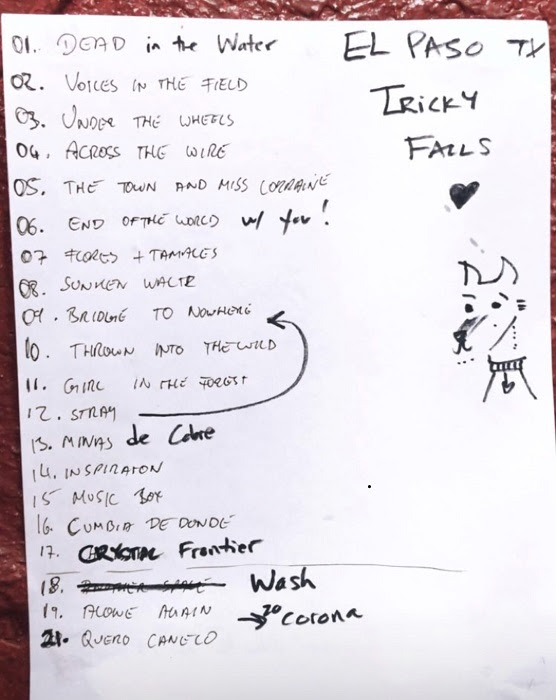 EL PASO TX
TRICKY
FALLS
01. DEAD in the Water
02. VOICES IN THE FIELD
03. UNDER THE WHEELS
04. ACROSS THE WIRE
05. THE TOWN AND MISS LORRAINE
06. END OF THE WORLD w/ you!
07 FLORES + TAMALES
08. SUNKEN WALTZ
09. BRIDGE TO NOWHERE
10. THROWN INTO THE WILD
11. GIRL IN THE FOREST
12. STRAY
13. MINAS de Cobre
14. INSPIRATON
15 MUSIC BOX
16. CUMBIA DE DONDE
17. CRYSTAL Frontier
18. Wash
19. ALONE AGAIN
→ 20 Corona
21. QUERO CANELO